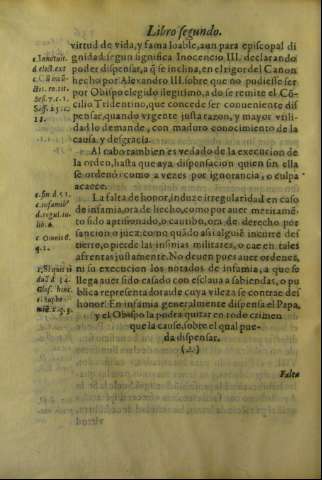 Libro segundo.
virtud de vida, y fama loable, aun para episcopal di
gnidad: segun significa Inocencio III. declarando
poder dispensar, a q̃ se inclina, en el rigor del Canon
hecho por Alexandro III. sobre que no pudiesse ser
por Obispo elegido ilegitimo, a do se remite el Con-
cilio Tridentino, que concede ser conueniente dis
pensar, quando vrgente justa razon, y mayor vtili-
dad lo demande, con maduro conocimiento de la
causa, y desgracia.
Al cabo tambien es vedado de la execucion de
la orden, hasta que aya dispensacion quien sin ella
se ordenò: como a vezes por ignorancia, o culpa
acaece.
La falta de honor, induze irregularidad en caso
de infamia, ora de hecho, como por auer meritamē-
to sido aprisionado, o cautibo, ora de derecho por
sancion o juez: como quādo assi alguiē incurre des
tierro, o pierde las insinias militares, o cae en tales
afrentas justamente. No deuen pues auer ordenes,
ni su execucion los notados de infamia, a que se
llega auer sido casado con esclaua a sabiendas, o pu
blica representadora de cuya vileza se contrae des
honor. En infamia generalmente dispensa el Papa,
y el Obispo la podra quitar en todo crimen
que la cause, sobre el qual pue-
da dispensar.
Falta